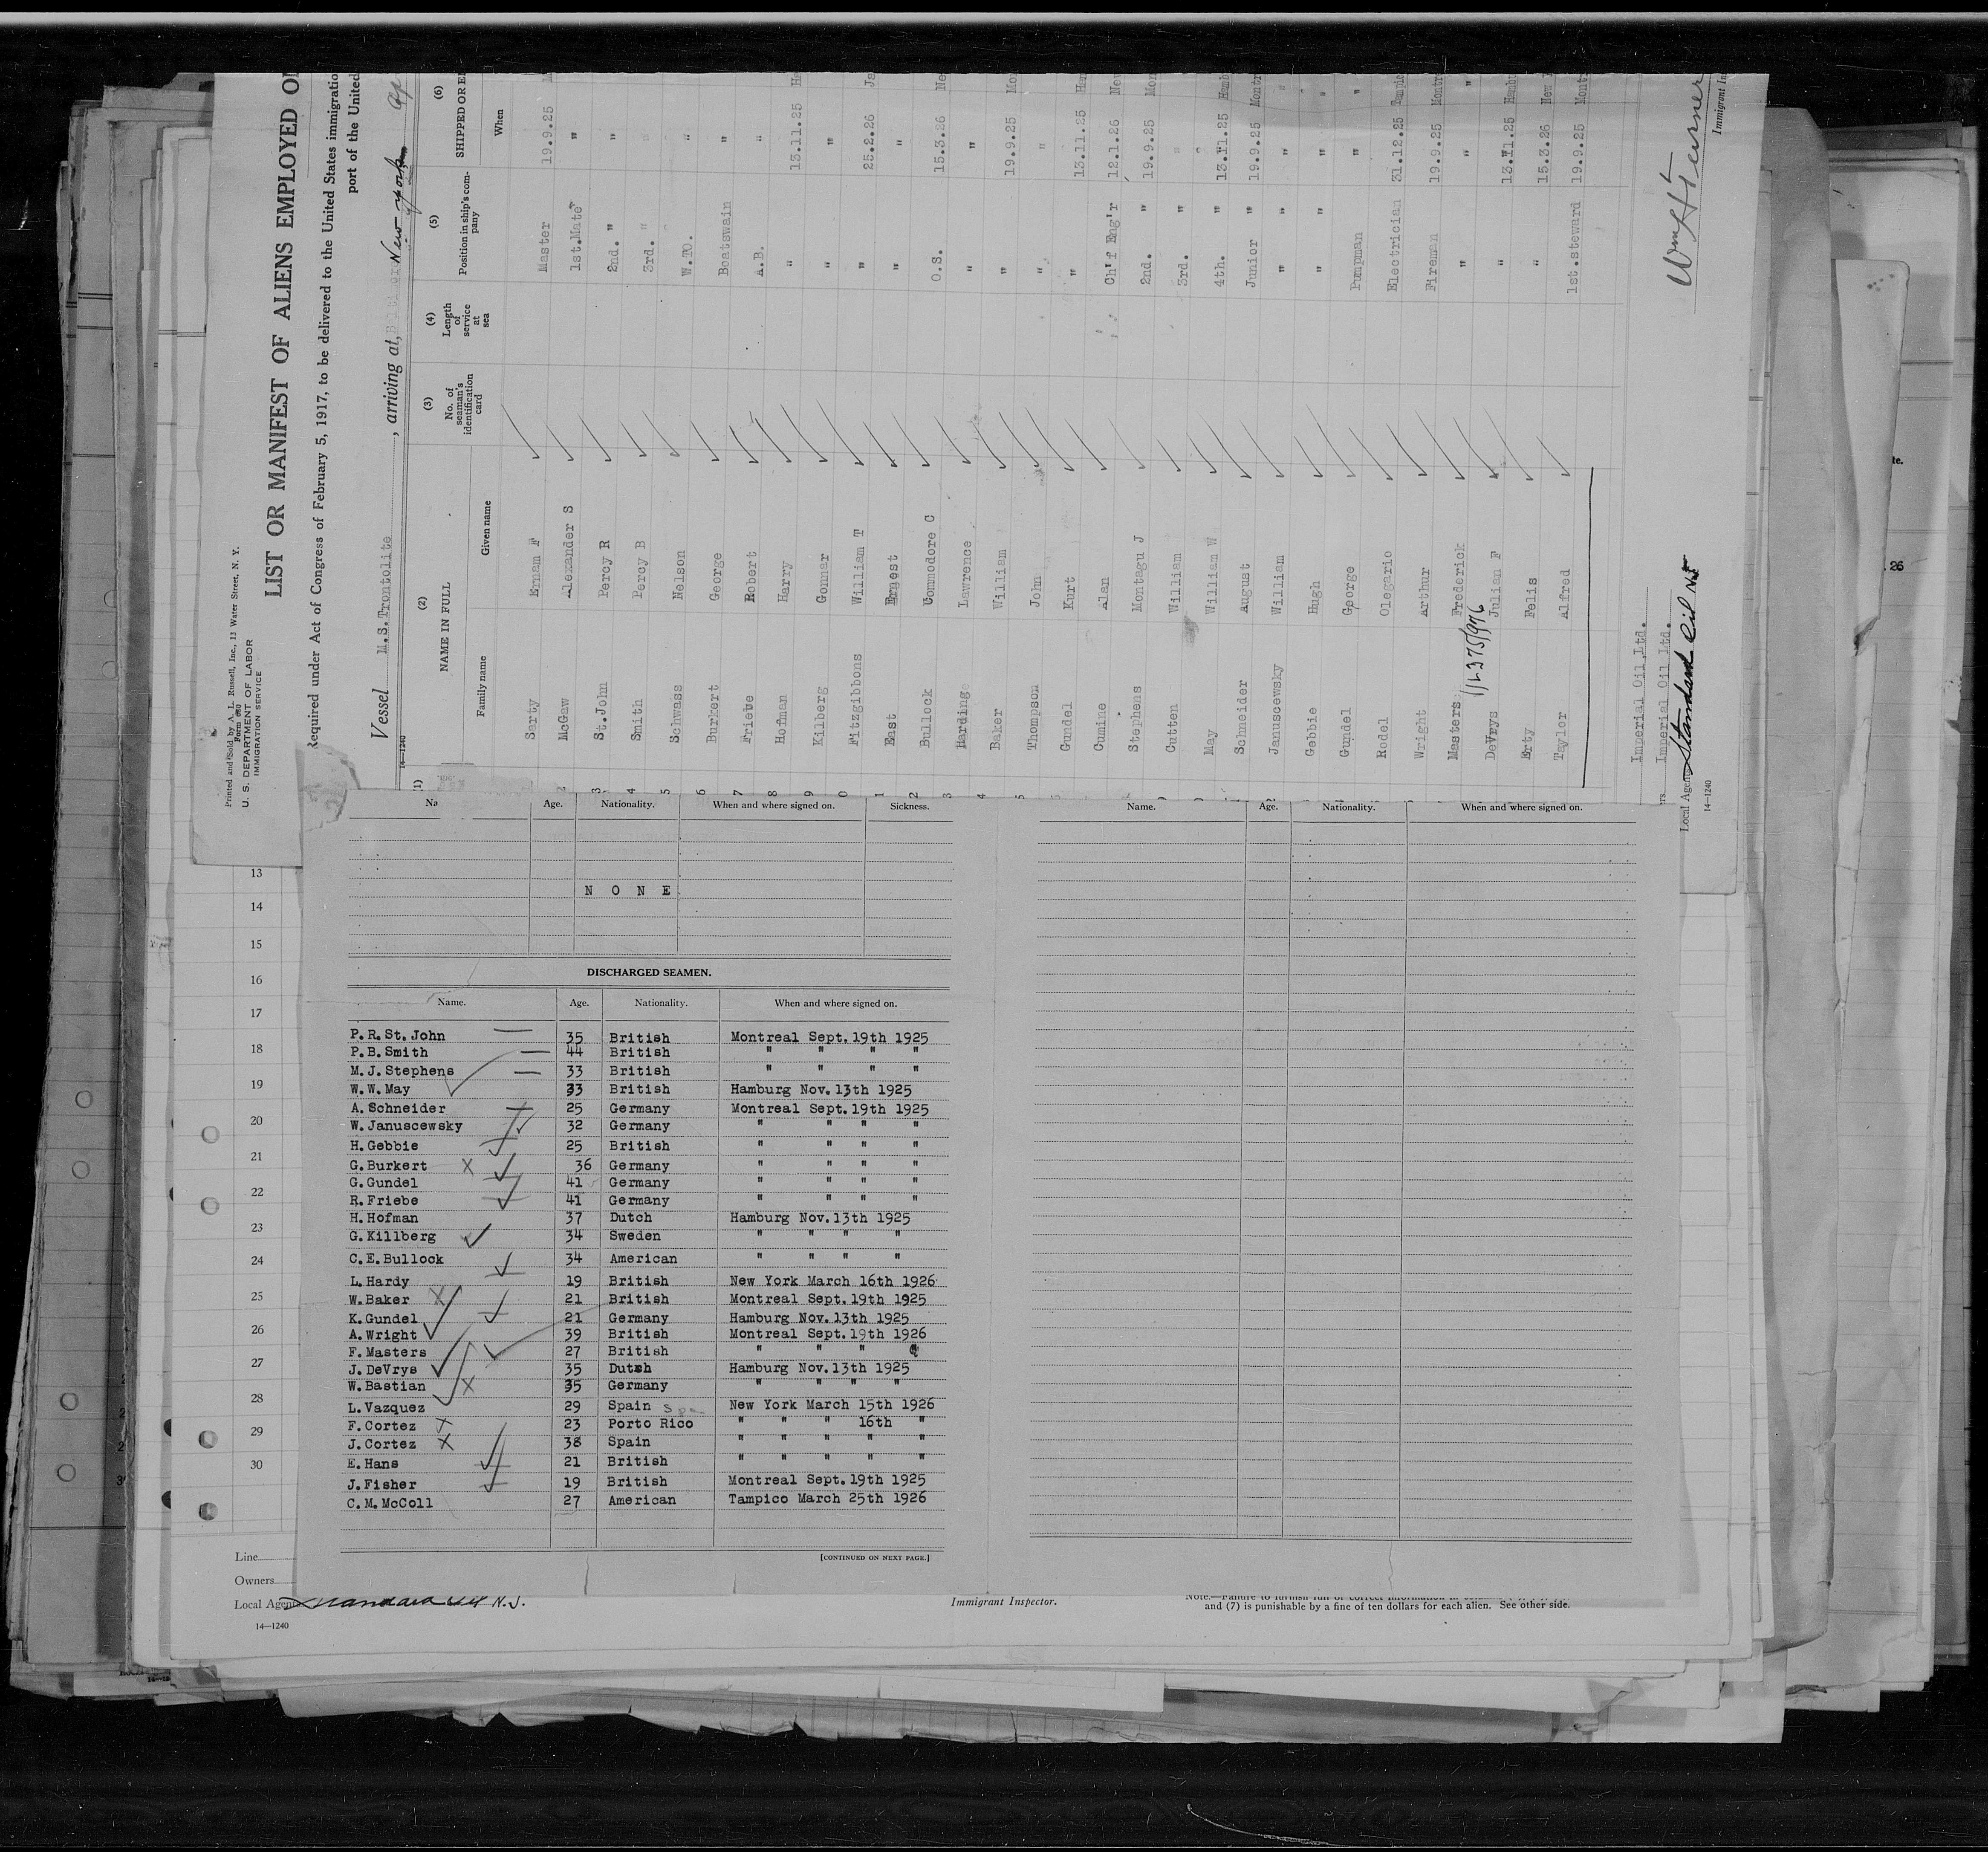 Printed and Sold by A. L. Russell, Inc., 13 Water Street, N. Y.
U. S. DEPARTMENT OF LABOR
IMMIGRATION SERVICE
LIST OR MANIFEST OF ALIENS EMPLOYED
Required under Act of Congress of February 5, 1917, to be delivered to the United States
port of the United
Vessel M.S.Trontolite, arriving at, New york
14—1240
(1) (2) (3) (4) (5) (6)
NAME IN FULL
No. of seaman's identification card
Length of service at sea
Position in ship's company
Family name Given name When
Sarty Ernan F Master 19.9.25
McGaw Alexander S 1st.Mate "
St.John Percy R 2nd. " "
Smith Percy B 3rd. " "
Schwass Nelson W.TO. "
Burkert George Boatswain "
Friebe Robert A.B. "
Hofman Harry " 13.11.25
Kilberg Gonnar " "
Fitzgibbons William T " 25.2.26
East Ernest " "
Bullock Commodore C O.S. 15.3.26
Harding Lawrence " "
Baker William " 19.9.25
Thompson John " "
Gundel Kurt " 13.11.25
Cumine Alan Ch'f Eng'r 12.1.26
Stephens Montagu J 2nd. " 19.9.25
Cutten William 3rd. " "
May William W 4th. " 13.11.25
Schneider August Junior " 19.9.25
Januscewsky William " " "
Gebbie Hugh " " "
Gundel George Pumpman "
Rodel Olegario Electrician 31.12.25
Wright Arthur Fireman 19.9.25
Masters Frederick " "
DeVrys Julian F " 13.11.25
Erty Felis " 15.3.26
Taylor Alfred 1st.steward 19.9.25
Imperial Oil,Ltd.
Imperial Oil Ltd.
Local Agent Standard Oil NJ
14—1240
Immigrant
Age. Nationality. When and where signed on. Sickness.
NONE
Name. Age. Nationality. When and where signed on.
DISCHARGED SEAMEN.
Name. Age. Nationality. When and where signed on.
P.R.St.John 35 British Montreal Sept.19th 1925
P.B.Smith 44 British " " " "
M.J.Stephens 33 British " " " "
W.W.May 33 British Hamburg Nov.13th 1925
A.Schneider 25 Germany Montreal Sept.19th 1925
W.Januscewsky 32 Germany " " " "
H.Gebbie 25 British " " " "
G.Burkert X 36 Germany " " " "
G.Gundel 41 Germany " " " "
R.Friebe 41 Germany " " " "
H.Hofman 37 Dutch Hamburg Nov.13th 1925
G.Killberg 34 Sweden " " " "
C.E.Bullock 34 American " " " "
L.Hardy 19 British New York March 16th 1926
W.Baker X 21 British Montreal Sept.19th 1925
K.Gundel 21 Germany Hamburg Nov.13th 1925
A.Wright 39 British Montreal Sept.19th 1926
F.Masters 27 British " " " "
J.DeVrys 35 Dutch Hamburg Nov.13th 1925
W.Bastian X 35 Germany " " " "
L.Vazquez 29 Spain New York March 15th 1926
F.Cortez X 23 Porto Rico " " " 16th "
J.Cortez X 38 Spain " " " " "
E.Hans 21 British " " " " "
J.Fisher 19 British Montreal Sept.19th 1925
C.M.McColl 27 American Tampico March 25th 1926
[CONTINUED ON NEXT PAGE.]
13
14
15
16
17
18
19
20
21
22
23
24
25
26
27
28
29
30
Line
Owners
Local Agents N.J.
14—1240
Immigrant Inspector.
and (7) is punishable by a fine of ten dollars for each alien. See other side.
26